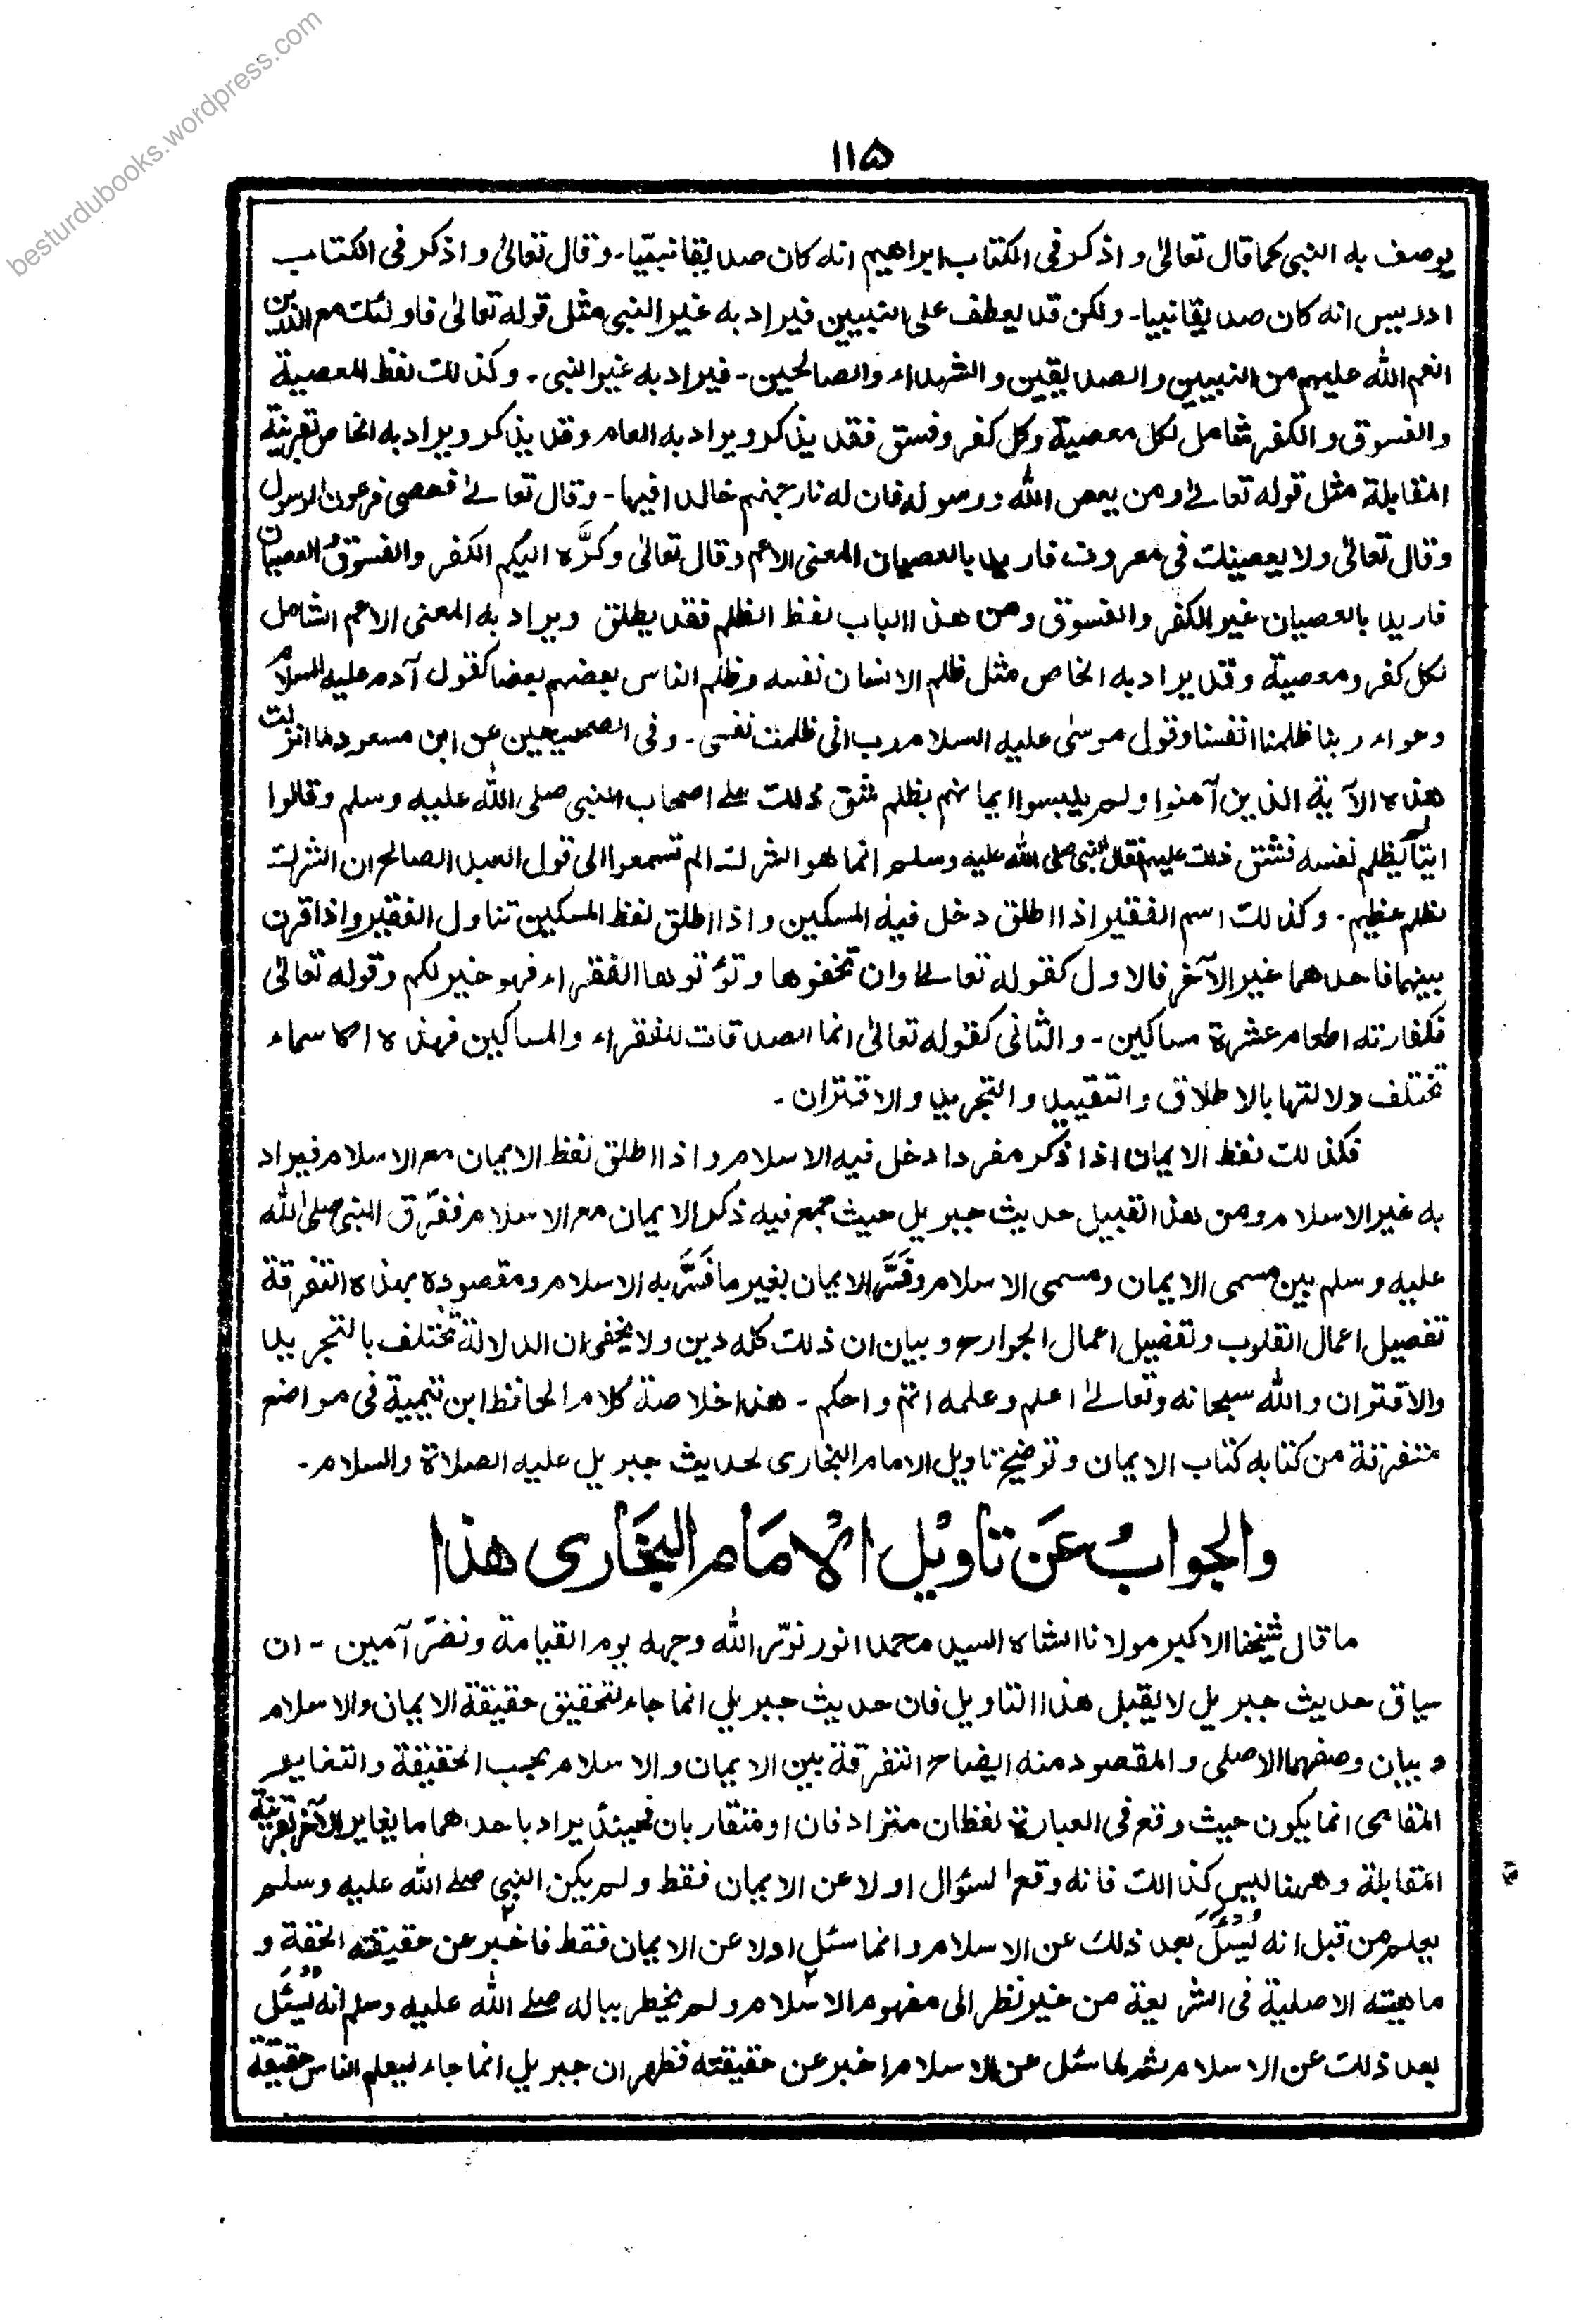 besturdubooks.wordpress.com
۱۱۵
يوصف به النبى كما قال تعالىٰ و اذكر فى الكتاب ابراهيم انه كان صديقا نبيّا۔ وقال تعالىٰ و اذكر فى الكتاب
ادريس انه كان صديقا نبيا۔ ولكن قد يعطف على النبيين فيراد به غير النبى مثل قوله تعالىٰ فاولئك مع الذين
انعم الله عليهم من النبيين والصديقين والشهداء والصالحين۔ فيراد به غير النبى۔ وكذلك لفظ المعصية
والفسوق والكفر شامل لكل معصية وكل كفر وفسق فقد يذكر ويراد به العام وقد يذكر ويراد به الخاص بقرينة
المقابلة مثل قوله تعالےٰ ومن يعص الله ورسوله فان له نار جهنم خالدا فيها۔ وقال تعالےٰ فعصى فرعون الرسول
وقال تعالىٰ ولا يعصينك فى معروف فاريد بالعصيان المعنى الاعم وقال تعالىٰ وكرَّه اليكم الكفر والفسوق والعصيان
فاريد بالعصيان غير الكفر والفسوق ومن هذا الباب لفظ الظلم فقد يطلق ويراد به المعنى الاعم الشامل
لكل كفر ومعصية وقد يراد به الخاص مثل ظلم الانسان نفسه وظلم الناس بعضهم بعضا كقول آدم عليه السلام
وحواء ربنا ظلمنا انفسنا وقول موسٰى عليه السلام رب انى ظلمت نفسى۔ وفى الصحيحين عن ابن مسعود لما انزلت
هذه الآية الذين آمنوا ولم يلبسوا ايمانهم بظلم شق ذلك علے اصحاب النبى صلى الله عليه وسلم وقالوا
ايّنا لم يظلم نفسه فشق ذلك عليهم فقال النبى صلى الله عليه وسلم انما هو الشرك الم تسمعوا الى قول العبد الصالح ان الشرك
لظلم عظيم۔ وكذلك اسم الفقير اذا اطلق دخل فيه المسكين و اذا اطلق لفظ المسكين تناول الفقير واذا قرن
بينهما فاحدهما غير الآخر فالاول كقوله تعالےٰ وان تخفوها وتؤتوها الفقراء فهو خير لكم وقوله تعالىٰ
فكفارته اطعام عشرة مساكين۔ والثانى كقوله تعالىٰ انما الصدقات للفقراء والمساكين فهذه الاسماء
تختلف دلالتها بالاطلاق والتقييد والتجريد والاقتران۔
فكذلك لفظ الايمان اذا ذكر مفردا دخل فيه الاسلام و اذا اطلق لفظ الايمان مع الاسلام فيراد
به غير الاسلام ومن هذا القبيل حديث جبريل حيث جمع فيه ذكر الايمان مع الاسلام ففرّق النبى صلى الله
عليه وسلم بين مسمى الايمان ومسمى الاسلام وفَسَّر الايمان بغير ما فَسَّر به الاسلام ومقصوده بهذه التفرقة
تفصيل اعمال القلوب وتفصيل اعمال الجوارح وبيان ان ذلك كله دين ولا يخفى ان الدلالة تختلف بالتجريد
والاقتران والله سبحانه وتعالےٰ اعلم وعلمه اتم واحكم۔ هذا خلاصة كلام الحافظ ابن تيمية فى مواضع
متفرقة من كتابه كتاب الايمان وتوضيح تاويل الامام البخارى لحديث جبريل عليه الصلاة والسلام۔
والجوابُ عَن تاويْل الاِمَام البخَارى هذا
ما قال شيخنا الاكبر مولانا الشاه السيد محمد انور نوّر الله وجهه يوم القيامة ونضرّ آمين۔ ان
سياق حديث جبريل لا يقبل هذا التاويل فان حديث جبريل انما جاء لتحقيق حقيقة الايمان والاسلام
و بيان وصفهما الاصلى والمقصود منه ايضاح التفرقة بين الايمان والاسلام بحسب الحقيقة والتغاير
التقابلى انما يكون حيث وقع فى العبارة لفظان مترادفان او متقاربان فحينئذ يراد باحدهما ما يغاير الآخر بقرينة
المقابلة وههنا ليس كذالك فانه وقع السئوال اولا عن الايمان فقط ولم يكن النبى صلے الله عليه وسلم
يعلم من قبل انه يُسئَل بعد ذلك عن الاسلام وانما سئل اولا عن الايمان فقط فاخبر عن حقيقته الحقة و
ماهيته الاصلية فى الشريعة من غير نظر الى مفهوم الاسلام ولم يخطر بباله صلے الله عليه وسلم انه يُسئَل
بعد ذلك عن الاسلام ثم لما سئل عن الاسلام اخبر عن حقيقته فظهر ان جبريل انما جاء ليعلم الناس حقيقة